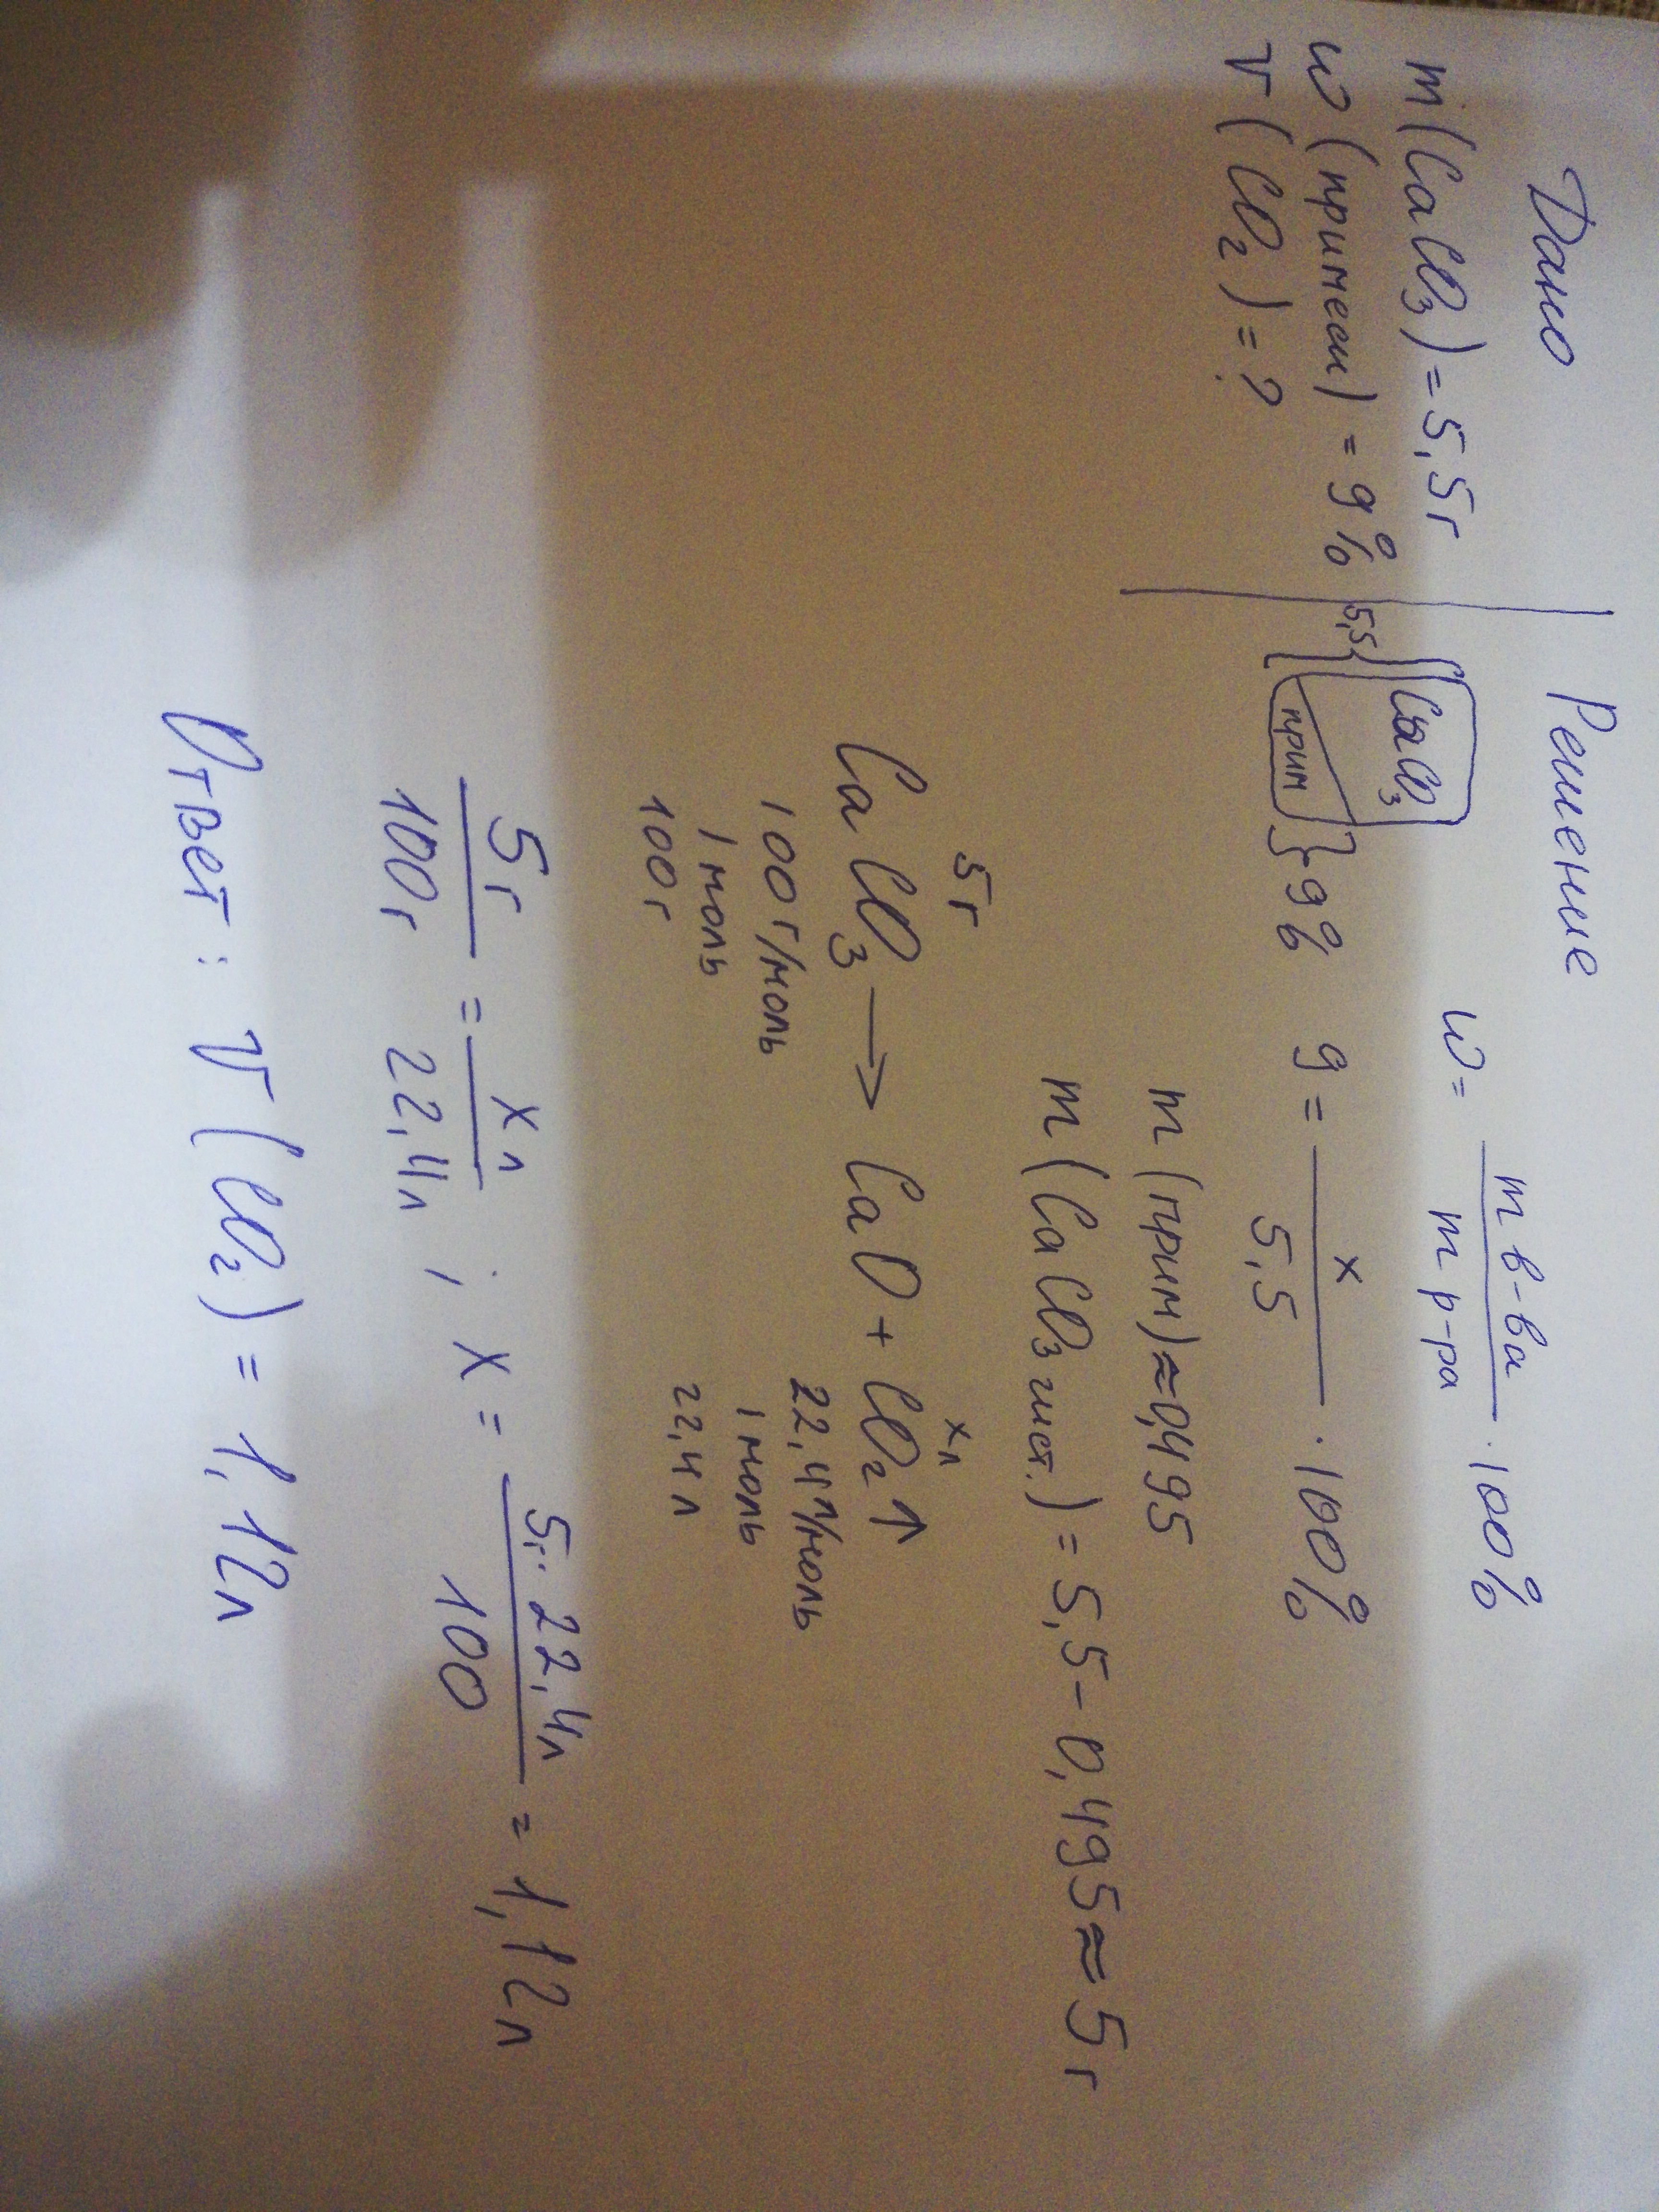 Дано
m(CaCO₃) = 5,5г
w(примеси) = 9%
V(CO₂) = ?
Решение
5,5 { CaCO₃
прим } 9%
w = m в-ва / m р-ра · 100%
9 = x / 5,5 · 100%
m(прим) ≈ 0,495
m(CaCO₃ чист.) = 5,5 - 0,495 ≈ 5г
5г xл
CaCO₃ → CaO + CO₂↑
100г/моль 22,4л/моль
1 моль 1 моль
100г 22,4л
5г / 100г = xл / 22,4л ; x = 5г · 22,4л / 100 = 1,12л
Ответ: V(CO₂) = 1,12л